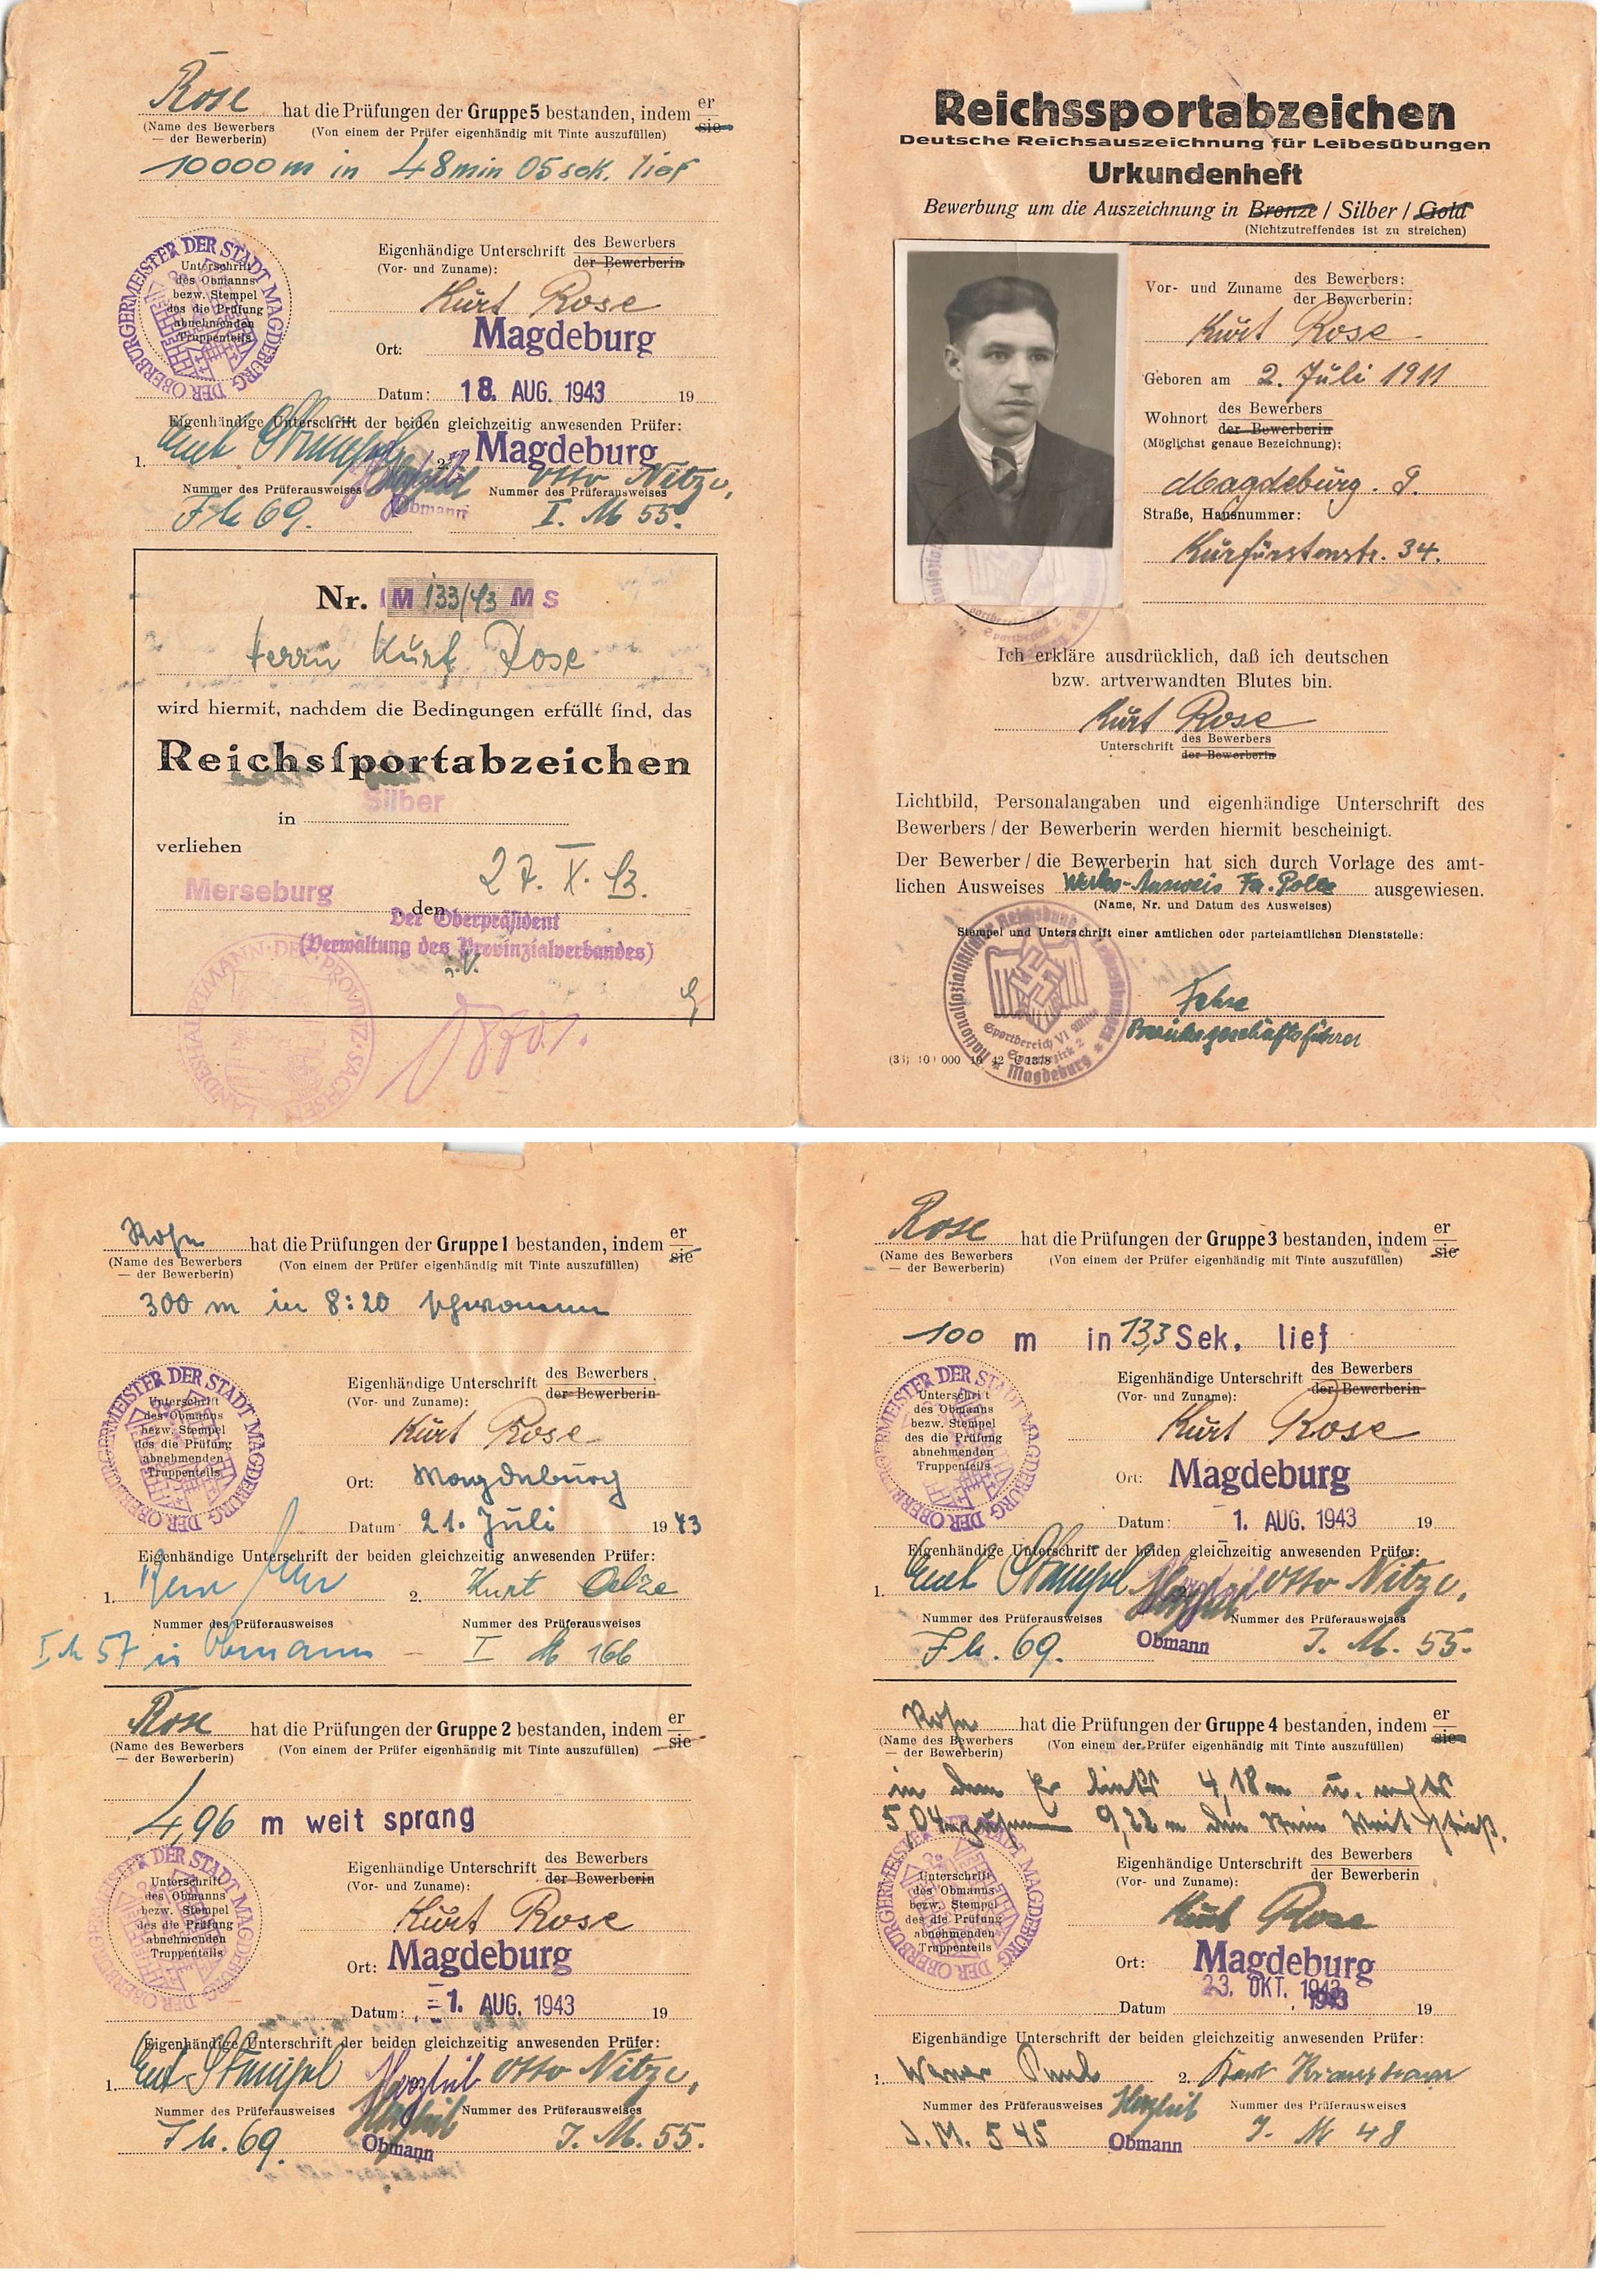 Rose hat die Prüfungen der Gruppe 5 bestanden, indem er
sie
(Name des Bewerbers (Von einem der Prüfer eigenhändig mit Tinte auszufüllen)
— der Bewerberin)
10000 m in 48 min 05 sek. lief
DER OBERBÜRGERMEISTER DER STADT MAGDEBURG
Unterschrift
des Obmanns
bezw. Stempel
des die Prüfung
abnehmenden
Truppenteils
Eigenhändige Unterschrift des Bewerbers
der Bewerberin
(Vor- und Zuname):
Kurt Rose
Ort: Magdeburg
Datum: 18. AUG. 1943 19
Eigenhändige Unterschrift der beiden gleichzeitig anwesenden Prüfer:
Magdeburg
1. 2. Otto Nitze,
Nummer des Prüferausweises Nummer des Prüferausweises
69. Obmann I. M 55.
Nr. I M 133/43 M S
Herrn Kurt Rose
wird hiermit, nachdem die Bedingungen erfüllt ſind, das
Reichsſportabzeichen
Silber
in
verliehen
Merseburg, den 27. X. 43.
Der Oberpräsident
(Verwaltung des Provinzialverbandes)
I.V.
LANDESHAUPTMANN DER PROVINZ SACHSEN
Reichssportabzeichen
Deutsche Reichsauszeichnung für Leibesübungen
Urkundenheft
Bewerbung um die Auszeichnung in Bronze / Silber / Gold
(Nichtzutreffendes ist zu streichen)
Vor- und Zuname des Bewerbers:
der Bewerberin:
Kurt Rose
Geboren am 2. Juli 1911
Wohnort des Bewerbers
der Bewerberin
(Möglichst genaue Bezeichnung):
Magdeburg.
Straße, Hausnummer:
Kurfürstenstr. 34.
Ich erkläre ausdrücklich, daß ich deutschen
bzw. artverwandten Blutes bin.
Kurt Rose
Unterschrift des Bewerbers
der Bewerberin
Lichtbild, Personalangaben und eigenhändige Unterschrift des
Bewerbers / der Bewerberin werden hiermit bescheinigt.
Der Bewerber / die Bewerberin hat sich durch Vorlage des amt-
lichen Ausweises Werks-Ausweis Fa. Polte ausgewiesen.
(Name, Nr. und Datum des Ausweises)
Stempel und Unterschrift einer amtlichen oder parteiamtlichen Dienststelle:
Nationalsozialistischer Reichsbund für Leibesübungen
Sportbereich VI Mitte
Sportbezirk 2
Magdeburg
Bezirksgeschäftsführer
Rose hat die Prüfungen der Gruppe 1 bestanden, indem er
sie
(Name des Bewerbers (Von einem der Prüfer eigenhändig mit Tinte auszufüllen)
— der Bewerberin)
300 m in 8:20 schwamm
DER OBERBÜRGERMEISTER DER STADT MAGDEBURG
Unterschrift
des Obmanns
bezw. Stempel
des die Prüfung
abnehmenden
Truppenteils
Eigenhändige Unterschrift des Bewerbers
der Bewerberin
(Vor- und Zuname):
Kurt Rose
Ort: Magdeburg
Datum 21. Juli 1943
Eigenhändige Unterschrift der beiden gleichzeitig anwesenden Prüfer:
1. 2. Kurt Oelze
Nummer des Prüferausweises Nummer des Prüferausweises
57 Obmann – I M 166
Rose hat die Prüfungen der Gruppe 2 bestanden, indem er
sie
(Name des Bewerbers (Von einem der Prüfer eigenhändig mit Tinte auszufüllen)
— der Bewerberin)
4,96 m weit sprang
DER OBERBÜRGERMEISTER DER STADT MAGDEBURG
Unterschrift
des Obmanns
bezw. Stempel
des die Prüfung
abnehmenden
Truppenteils
Eigenhändige Unterschrift des Bewerbers
der Bewerberin
(Vor- und Zuname):
Kurt Rose
Ort: Magdeburg
Datum: 1. AUG. 1943 19
Eigenhändige Unterschrift der beiden gleichzeitig anwesenden Prüfer:
1. Otto Nitze,
Nummer des Prüferausweises Nummer des Prüferausweises
69. Obmann I. M. 55.
Rose hat die Prüfungen der Gruppe 3 bestanden, indem er
sie
(Name des Bewerbers (Von einem der Prüfer eigenhändig mit Tinte auszufüllen)
— der Bewerberin)
100 m in 13,3 Sek. lief
DER OBERBÜRGERMEISTER DER STADT MAGDEBURG
Unterschrift
des Obmanns
bezw. Stempel
des die Prüfung
abnehmenden
Truppenteils
Eigenhändige Unterschrift des Bewerbers
der Bewerberin
(Vor- und Zuname):
Kurt Rose
Ort: Magdeburg
Datum: 1. AUG. 1943 19
Eigenhändige Unterschrift der beiden gleichzeitig anwesenden Prüfer:
1. Otto Nitze,
Nummer des Prüferausweises Nummer des Prüferausweises
69. Obmann I. M. 55.
Rose hat die Prüfungen der Gruppe 4 bestanden, indem er
sie
(Name des Bewerbers (Von einem der Prüfer eigenhändig mit Tinte auszufüllen)
— der Bewerberin)
in dem Er links 4,18 m u. rechts
5,04 zusammen 9,22 m den Stein weit stieß.
DER OBERBÜRGERMEISTER DER STADT MAGDEBURG
Unterschrift
des Obmanns
bezw. Stempel
des die Prüfung
abnehmenden
Truppenteils
Eigenhändige Unterschrift des Bewerbers
der Bewerberin
(Vor- und Zuname):
Kurt Rose
Ort: Magdeburg
Datum 23. OKT. 1943 19
Eigenhändige Unterschrift der beiden gleichzeitig anwesenden Prüfer:
1. Werner 2. Kurt
Nummer des Prüferausweises Nummer des Prüferausweises
I. M. 545 Obmann I. M 48